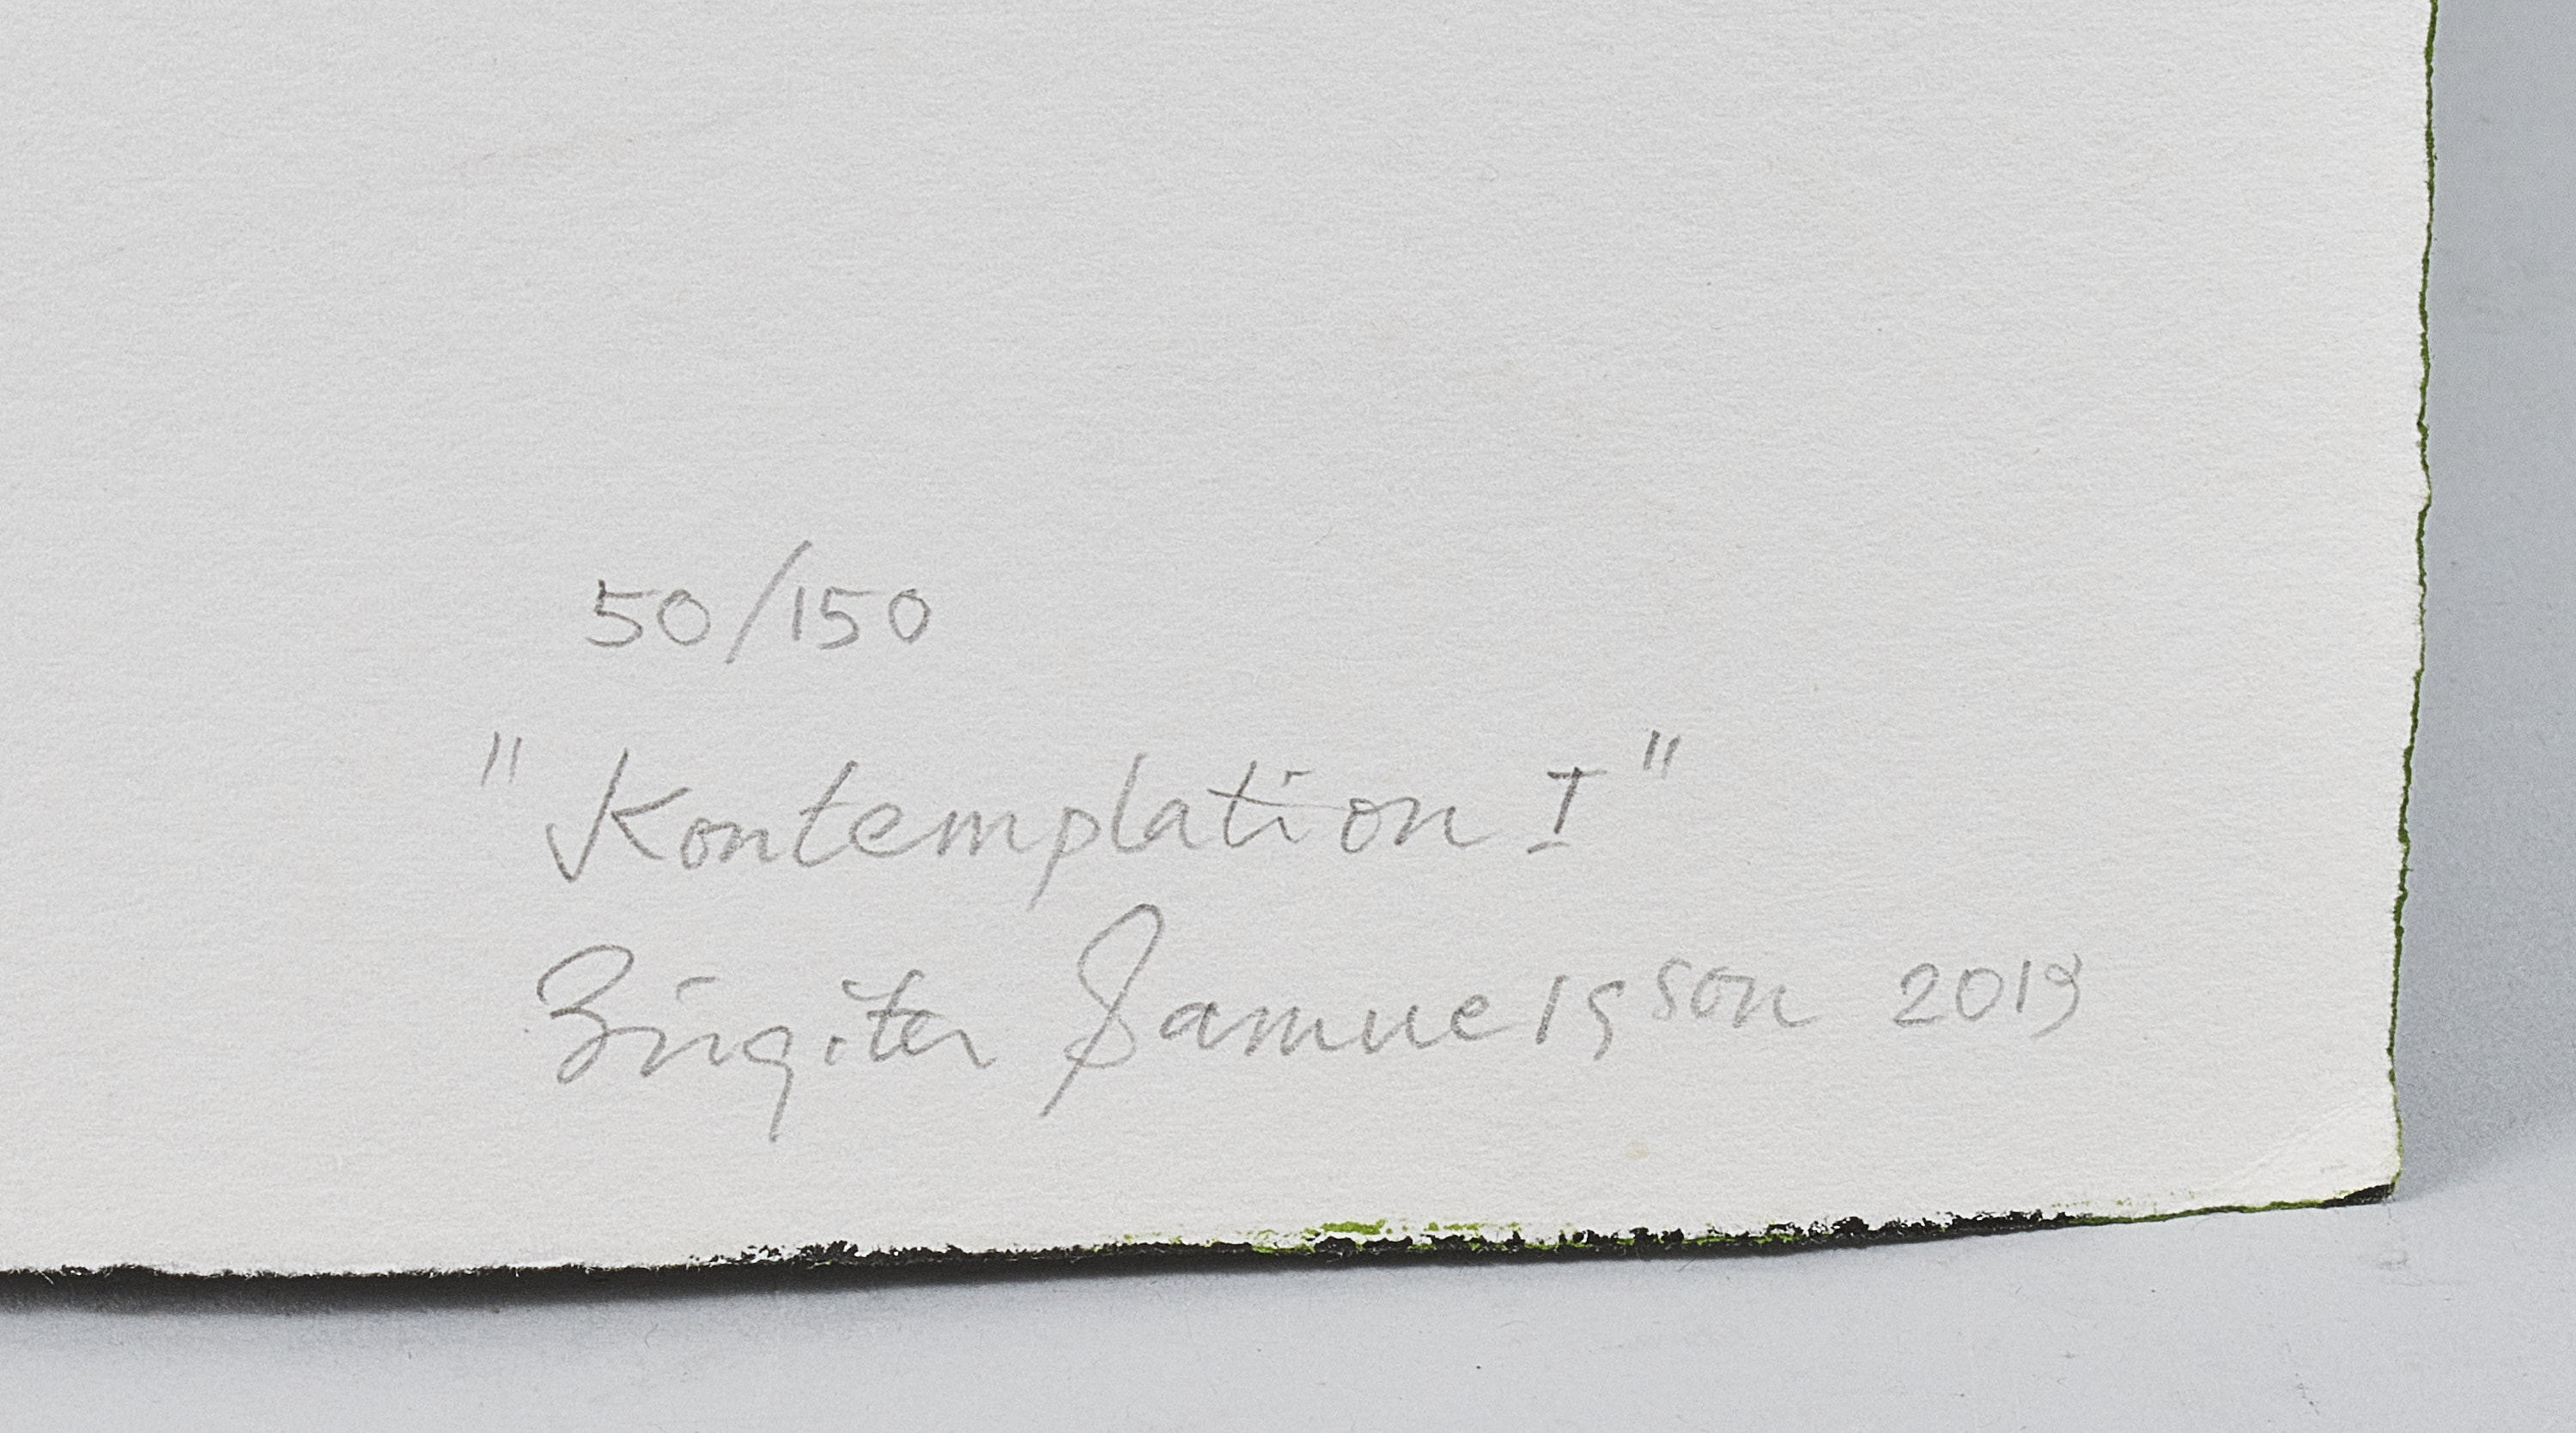 50/150
"Kontemplation I"
Birgitta Samuelsson 2019